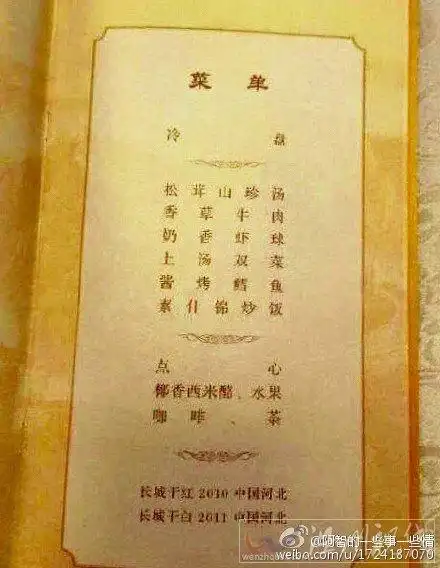 菜单
冷盘
松茸山珍汤
香草牛肉
奶香虾球
上汤双菜
酱烤鳕鱼
素什锦炒饭
点心
椰香西米酪、水果
咖啡、茶
长城干红 2010 中国河北
长城干白 2011 中国河北
@阿智的一些事一些情
weibo.com/u/1724187070